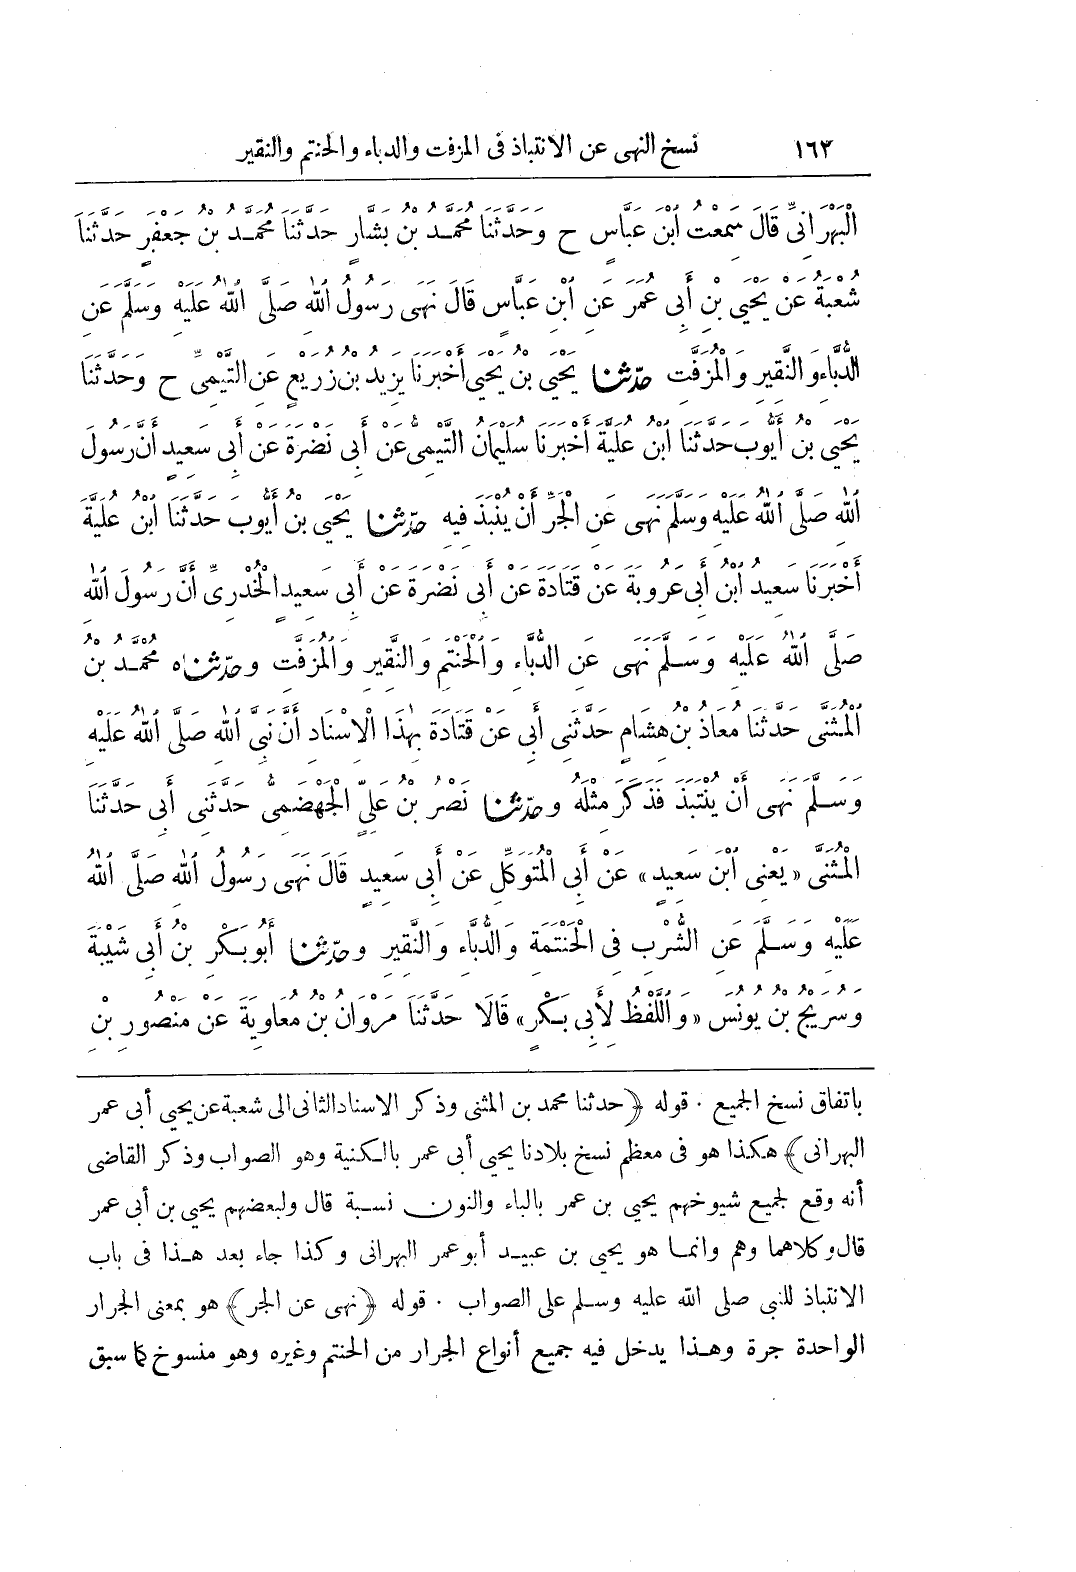 ١٦٣ نسخ النهى عن الانتباذ فى المزفت والدباء والحنتم والنقير
الْبَهْرَانِىِّ قَالَ سَمِعْتُ ابْنَ عَبَّاسٍ ح وَحَدَّثَنَا مُحَمَّدُ بْنُ بَشَّارٍ حَدَّثَنَا مُحَمَّدُ بْنُ جَعْفَرٍ حَدَّثَنَا
شُعْبَةُ عَنْ يَحْيَى بْنِ أَبِى عُمَرَ عَنِ ابْنِ عَبَّاسٍ قَالَ نَهَى رَسُولُ اللّٰهِ صَلَّى اللّٰهُ عَلَيْهِ وَسَلَّمَ عَنِ
الدُّبَّاءِ وَالنَّقِيرِ وَالْمُزَفَّتِ حدّثنا يَحْيَى بْنُ يَحْيَى أَخْبَرَنَا يَزِيدُ بْنُ زُرَيْعٍ عَنِ التَّيْمِىِّ ح وَحَدَّثَنَا
يَحْيَى بْنُ أَيُّوبَ حَدَّثَنَا ابْنُ عُلَيَّةَ أَخْبَرَنَا سُلَيْمَانُ التَّيْمِىُّ عَنْ أَبِى نَضْرَةَ عَنْ أَبِى سَعِيدٍ أَنَّ رَسُولَ
اللّٰهِ صَلَّى اللّٰهُ عَلَيْهِ وَسَلَّمَ نَهَى عَنِ الْجَرِّ أَنْ يُنْبَذَ فِيهِ حدّثنا يَحْيَى بْنُ أَيُّوبَ حَدَّثَنَا ابْنُ عُلَيَّةَ
أَخْبَرَنَا سَعِيدُ ابْنُ أَبِى عَرُوبَةَ عَنْ قَتَادَةَ عَنْ أَبِى نَضْرَةَ عَنْ أَبِى سَعِيدٍ الْخُدْرِىِّ أَنَّ رَسُولَ اللّٰهِ
صَلَّى اللّٰهُ عَلَيْهِ وَسَلَّمَ نَهَى عَنِ الدُّبَّاءِ وَالْحَنْتَمِ وَالنَّقِيرِ وَالْمُزَفَّتِ وحدّثناه مُحَمَّدُ بْنُ
الْمُثَنَّى حَدَّثَنَا مُعَاذُ بْنُ هِشَامٍ حَدَّثَنِى أَبِى عَنْ قَتَادَةَ بِهٰذَا الْاِسْنَادِ أَنَّ نَبِىَّ اللّٰهِ صَلَّى اللّٰهُ عَلَيْهِ
وَسَلَّمَ نَهَى أَنْ يُنْتَبَذَ فَذَكَرَ مِثْلَهُ وحدّثنا نَصْرُ بْنُ عَلِىٍّ الْجَهْضَمِىُّ حَدَّثَنِى أَبِى حَدَّثَنَا
الْمُثَنَّى «يَعْنِى ابْنَ سَعِيدٍ» عَنْ أَبِى الْمُتَوَكِّلِ عَنْ أَبِى سَعِيدٍ قَالَ نَهَى رَسُولُ اللّٰهِ صَلَّى اللّٰهُ
عَلَيْهِ وَسَلَّمَ عَنِ الشُّرْبِ فِى الْحَنْتَمَةِ وَالدُّبَّاءِ وَالنَّقِيرِ وحدّثنا أَبُو بَكْرِ بْنُ أَبِى شَيْبَةَ
وَسُرَيْجُ بْنُ يُونُسَ «وَاللَّفْظُ لِأَبِى بَكْرٍ» قَالَا حَدَّثَنَا مَرْوَانُ بْنُ مُعَاوِيَةَ عَنْ مَنْصُورِ بْنِ
باتفاق نسخ الجميع . قوله ﴿حدثنا محمد بن المثنى وذكر الاسناد الثانى الى شعبة عن يحيى أبى عمر
البهرانى﴾ هكذا هو فى معظم نسخ بلادنا يحيى أبى عمر بالكنية وهو الصواب وذكر القاضى
أنه وقع لجميع شيوخهم يحيى بن عمر بالباء والنون نسبة قال ولبعضهم يحيى بن أبى عمر
قال وكلاهما وهم وانما هو يحيى بن عبيد أبو عمر البهرانى وكذا جاء بعد هذا فى باب
الانتباذ للنبى صلى الله عليه وسلم على الصواب . قوله ﴿نهى عن الجر﴾ هو بمعنى الجرار
الواحدة جرة وهذا يدخل فيه جميع أنواع الجرار من الحنتم وغيره وهو منسوخ كما سبق